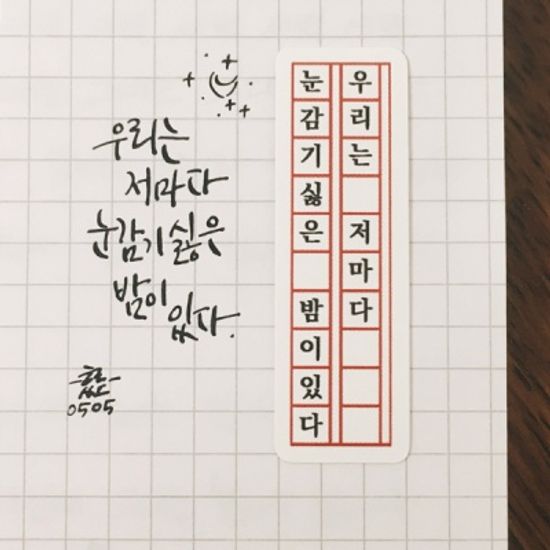 우리는
저마다
눈감기싫은
밤이
있다.
0505
우리는 저마다
눈감기싫은 밤이있다